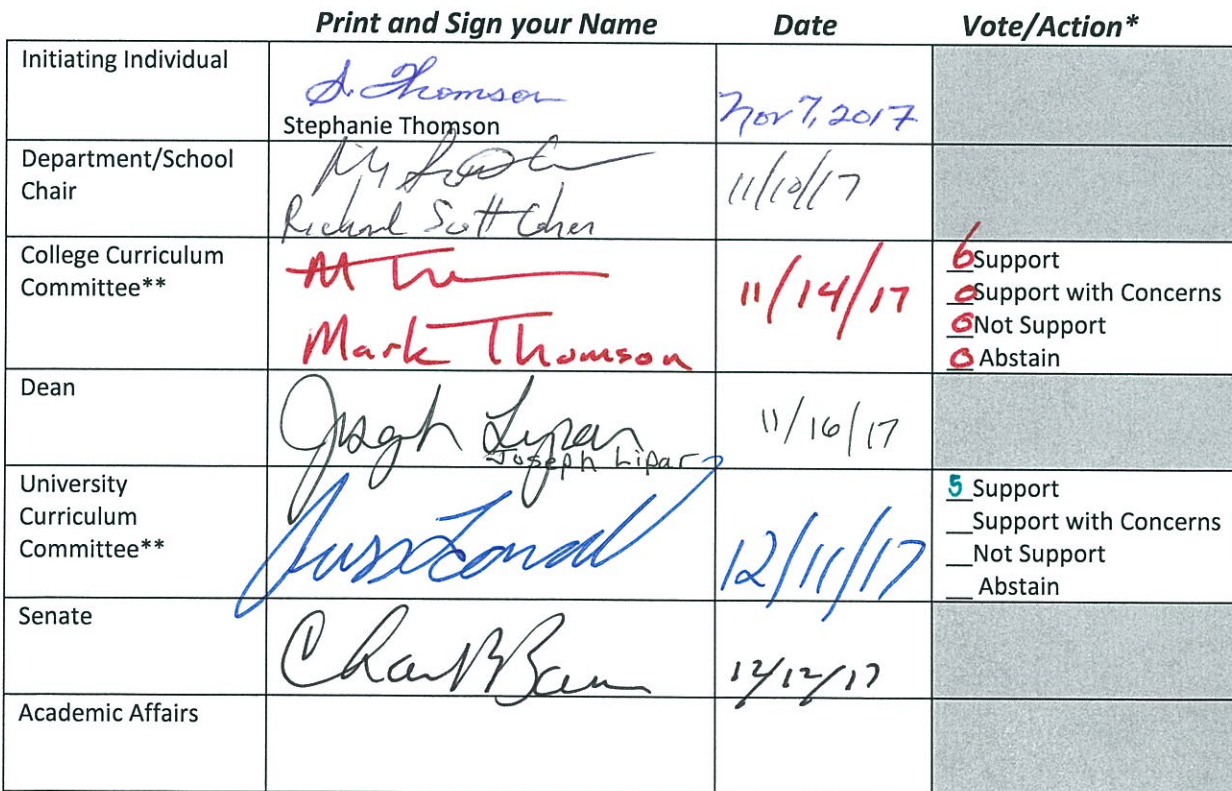 Print and Sign your Name Date Vote/Action*
Initiating Individual
S. Thomson
Stephanie Thomson
Nov 7, 2017
Department/School
Chair
Richard Scott Cohen
11/10/17
College Curriculum
Committee**
Mark Thomson
11/14/17
6 Support
0 Support with Concerns
0 Not Support
0 Abstain
Dean
Joseph Lipar
Joseph Lipar
11/16/17
University
Curriculum
Committee**
12/11/17
5 Support
__Support with Concerns
__Not Support
__ Abstain
Senate
12/12/17
Academic Affairs